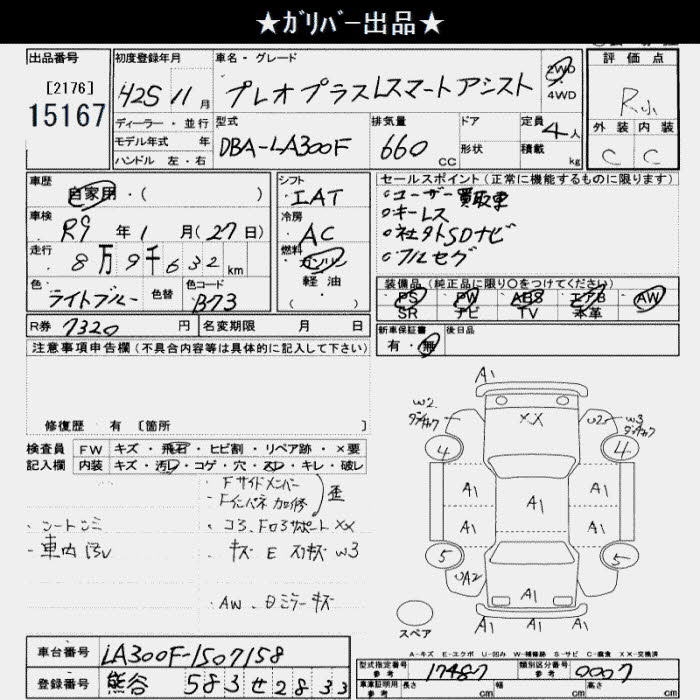 ★ｶﾞﾘﾊﾞｰ出品★
出品番号
[2176]
15167
初度登録年月
425 11月
車名・グレード
プレオプラスLスマートアシスト
2WD
4WD
評価点
R小
外装 内装
C C
ディーラー・並行
モデル年式 年
ハンドル 左・右
型式
DBA-LA300F
排気量
660 CC
ドア
形状
定員
4人
積載 kg
車歴
自家用・( )
車検
R9年1月(27日)
走行
8万9千632km
色
ライトブルー
色替
色コード
B73
シフト
IAT
冷房
AC
燃料
ガソリン
軽油
( )
セールスポイント(正常に機能するものに限ります)
○ユーザー買取車
○キーレス
○社外SDナビ
○フルセグ
装備品(純正品に限り○をつけてください)
PS PW ABS エアB AW
SR ナビ TV 本革
R券 7320円
名変期限 月 日
新車保証書
有・無
後日品
注意事項申告欄(不具合内容等は具体的に記入して下さい)
修復歴 有 [箇所
検査員
記入欄
FW キズ・飛石・ヒビ割・リペア跡・×要
内装 キズ・汚レ・コゲ・穴・スレ・キレ・破レ
・Fサイドメンバー
・Fインパネ加修 歪
・コア、Fロアサポート XX
・キズ E スリキズ W3
・AW、ミラーキズ
・シートシミ
・車内汚レ
A1
W2
XX
U2
W3
4 4
A1 A1 A1
A1 A1
5 5
UA2
A1
A1 A1 A1
スペア
A-キズ E-エクボ U-凹み W-補修跡 S-サビ C-腐食 XX-交換済
車台番号
LA300F-1507158
登録番号
熊谷 583 せ 2833
型式指定番号
参考
17487
類別区分番号
参考
0007
車庫証明用
参考
長さ cm 幅 cm 高さ cm